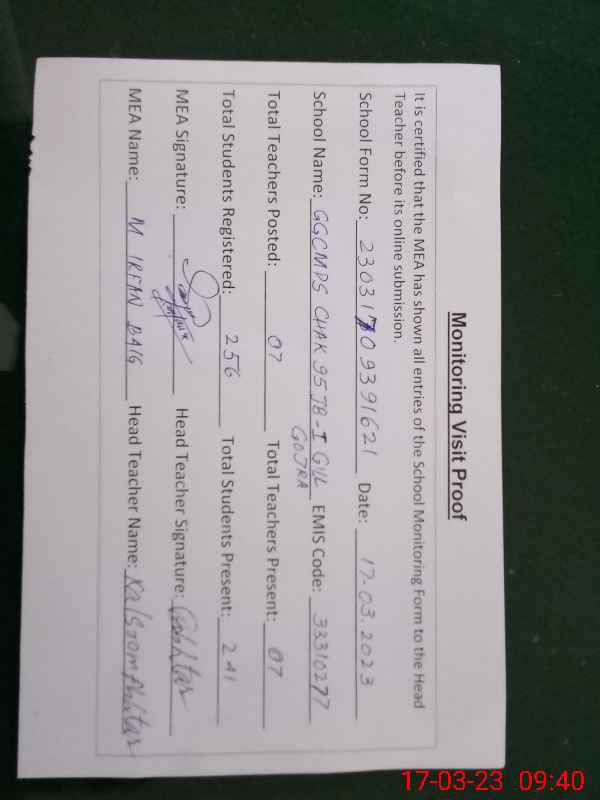 Monitoring Visit Proof
It is certified that the MEA has shown all entries of the School Monitoring Form to the Head
Teacher before its online submission.
School Form No: 23031709391621 Date: 17-03.2023
School Name: GGCMPS CHAK 95 JB-I GILL EMIS Code: 33310277
GOJRA
Total Teachers Posted: 07 Total Teachers Present: 07
Total Students Registered: 256 Total Students Present: 241
MEA Signature: Head Teacher Signature:
MEA Name: M IRFAN BAIG Head Teacher Name: Kalsoom Akhtar
17-03-23 09:40